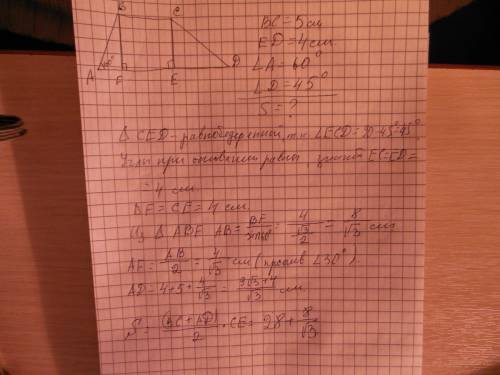 B C
A 60° F E D
BC = 5 см
ED = 4 см.
∠A = 60°
∠D = 45°
S = ?
Δ CED - равнобедренный, т.к. ∠ECD = 90-45=45°
Углы при основании равны, значит EC=ED=
= 4 см.
BF = CE = 4 см.
Из Δ ABF AB = BF/sin60° = 4/(√3/2) = 8/√3 см
AF = AB/2 = 4/√3 см (против ∠30°).
AD = 4+5+4/√3 = (9√3+4)/√3 см
S = (BC + AD)/2 · CE = 28 + 8/√3